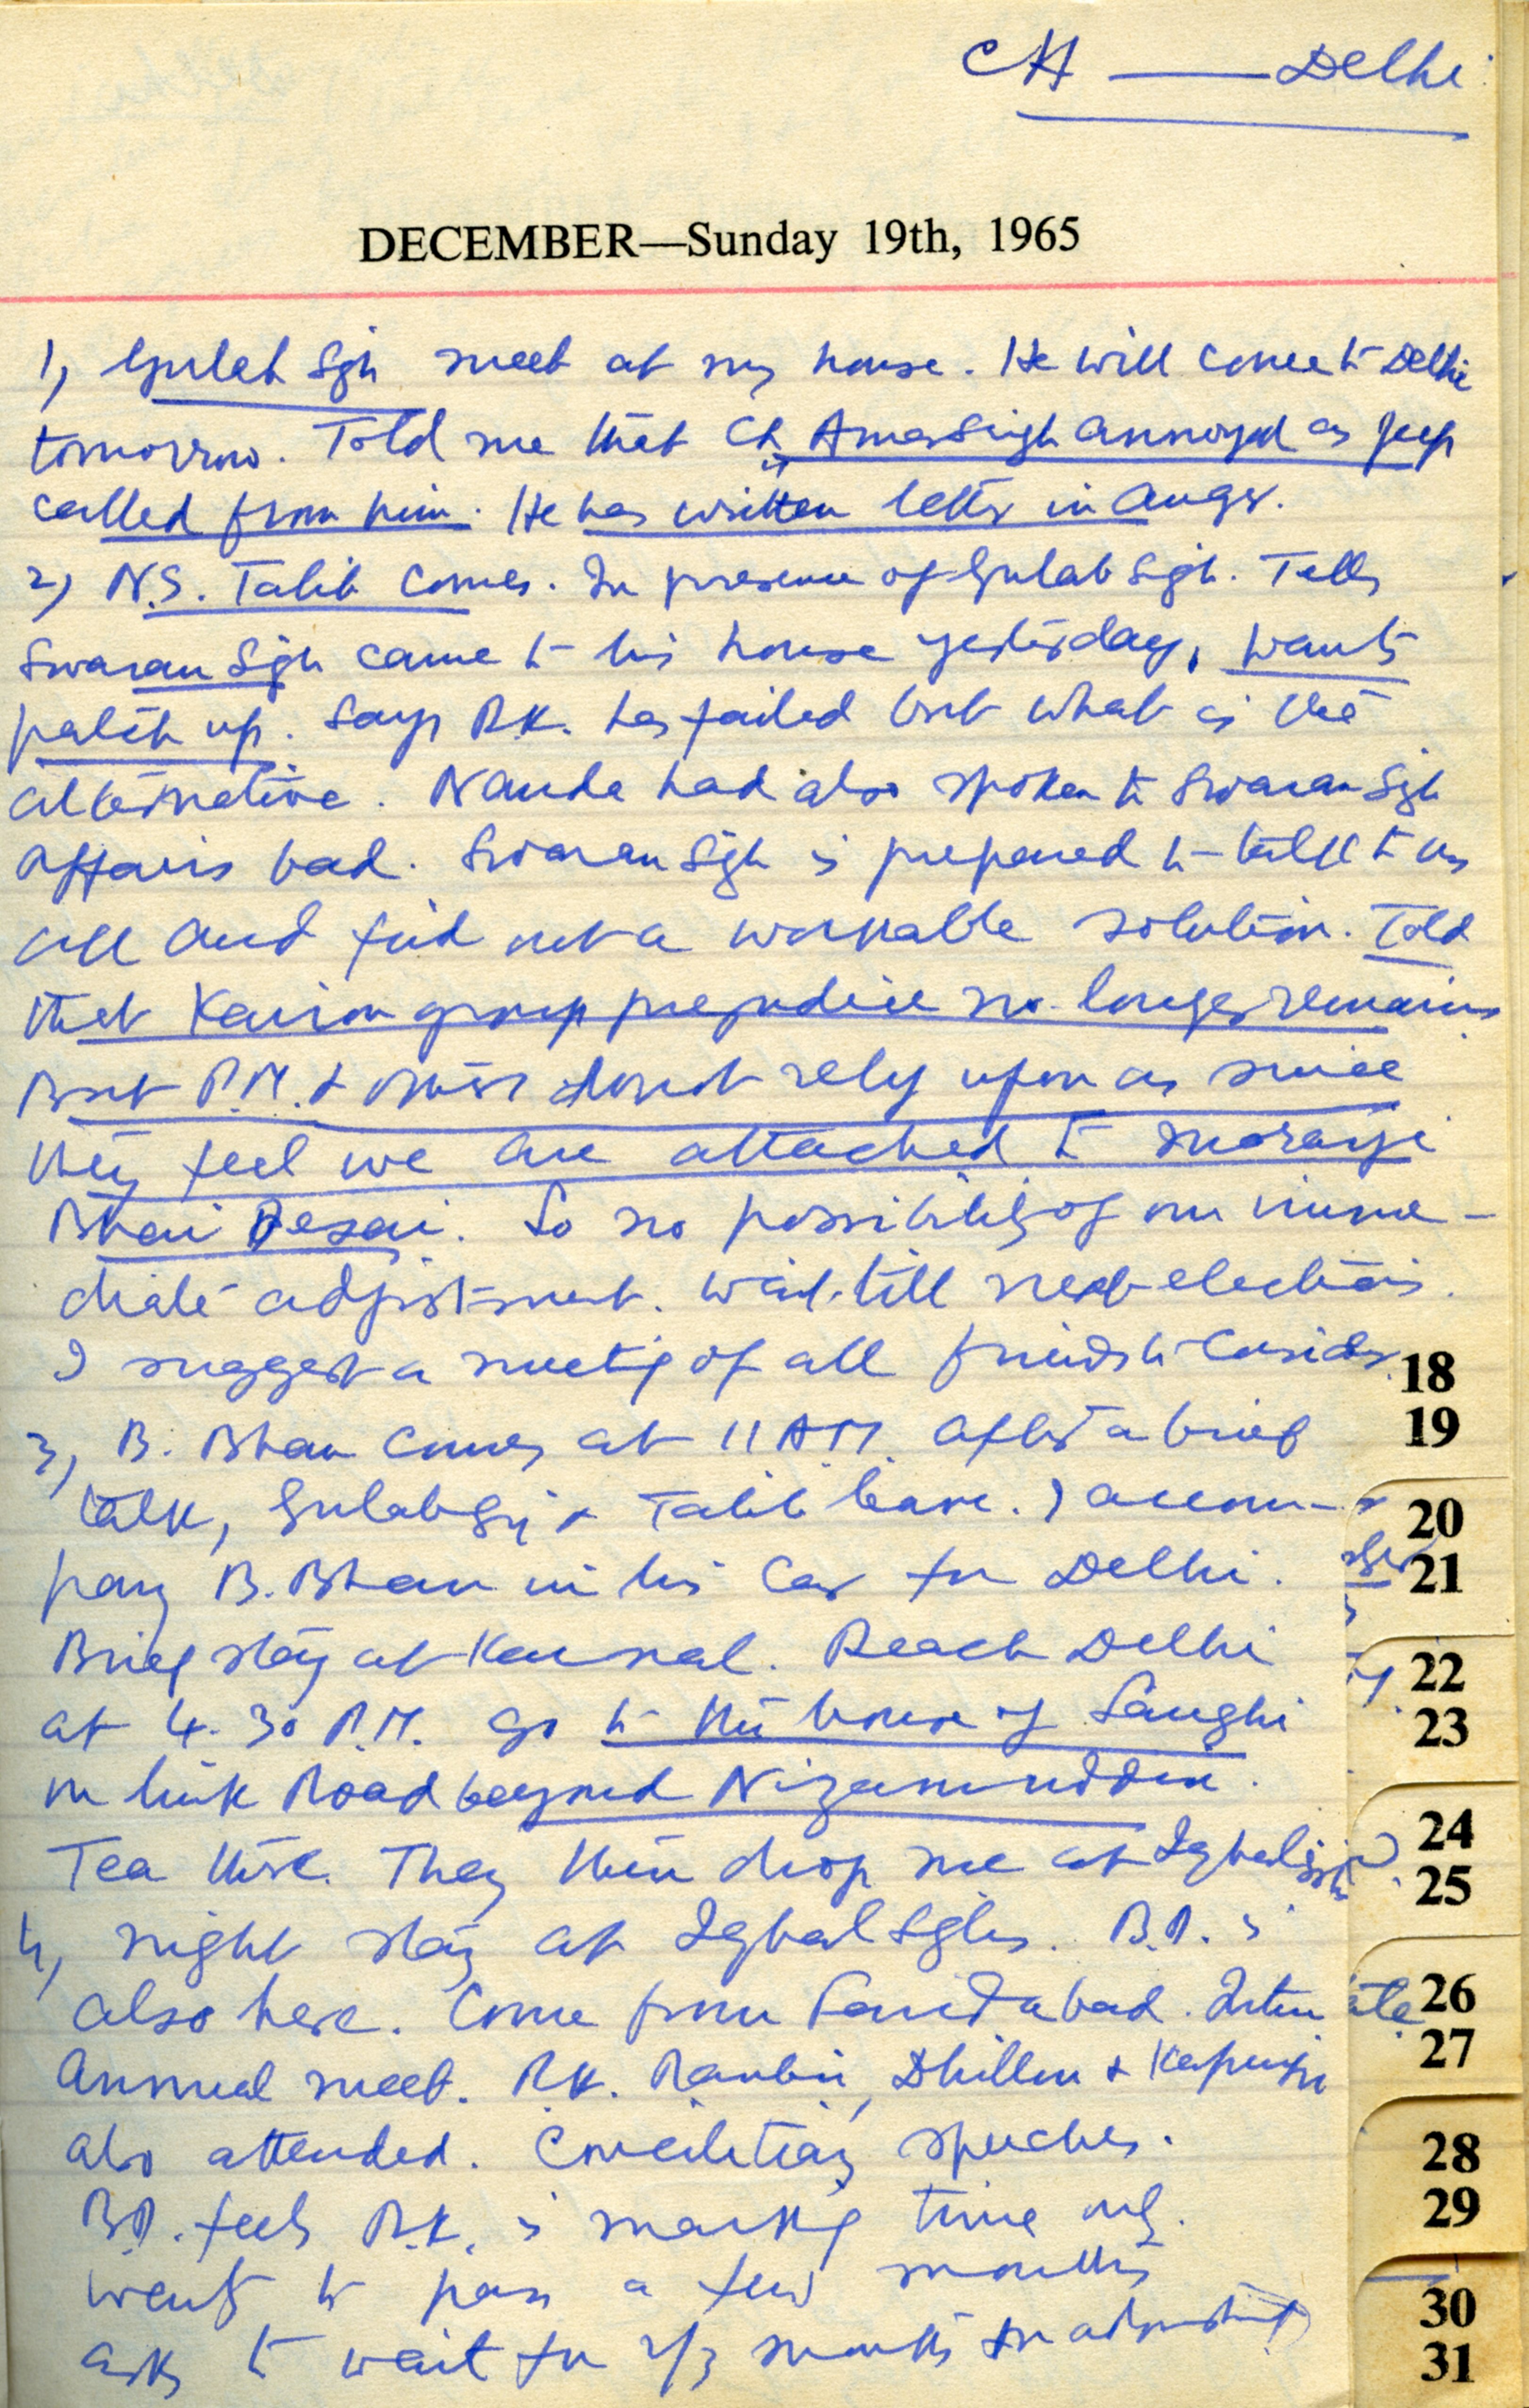 CH — Delhi
DECEMBER—Sunday 19th, 1965
1, Gulab Sgh meet at my house. He will come to Delhi
tomorrow. Told me that Ch. Amar Singh annoyed as jeep
called from him. He has written letter in Angr.
2, N.S. Talib comes. In presence of Gulab Sigh. Tells
Swaran Sgh came to his house yesterday, wants
patch up. Says R.K. has failed but what is the
alternative. Nanda had also spoken to Swaran Sgh
affairs bad. Swaran Sgh is prepared to talk to us
all and find out a workable solution. Told
that Kairon group prejudice no longer remains
But P.M. & others donot rely upon us since
they feel we are attached to Morarji
Bhai Desai. So no possibility of our imme-
diate adjistment. Wait till next elections.
I suggest a meetig of all friends to consider
3, B. Bhan comes at 11 AM after a brief
talk, Gulab Sgh & Talib leave. I accom-
pany B. Bhan in his car for Delhi.
Brief stay at Karnal. Reach Delhi
at 4.30 P.M. go to the house of Sanghi
on link Road beyond Nizamuddin.
Tea there. They then drop me at Iqbal Sgh
4, night stay at Iqbal Sghs. B.D. is
also here. Come from Faridabad.
Annual meet. R.K. Ranbir, Dhillon &
also attended. Conciliatiay speeches.
B.D. feels R.K. is markig time only.
wants to pass a few months
asks to wait for 2/3 months for adjustmt
18
19
20
21
22
23
24
25
26
27
28
29
30
31